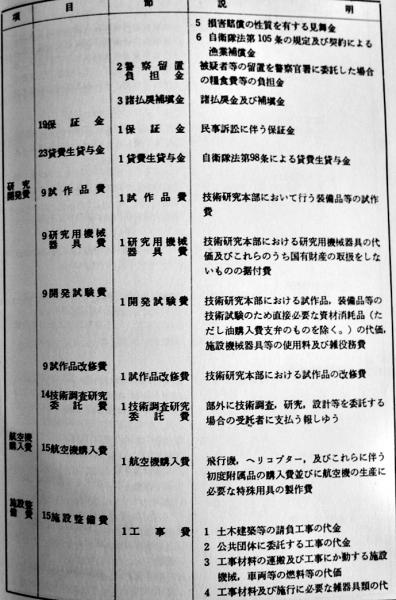 項 目 節 説 明
5 損害賠償の性質を有する見舞金
6 自衛隊法第105条の規定及び契約による
漁業補償金
2警察留置
負担金
被疑者等の留置を警察官署に委託した場合
の糧食費等の負担金
3諸払戻補填金 諸払戻金及び補填金
19保証金
1保証金 民事訴訟に伴う保証金
23貸費生貸与金
1貸費生貸与金 自衛隊法第98条による貸費生貸与金
研究
開発費
9試作品費
1試作品費 技術研究本部において行う装備品等の試作
費
9研究用機械
器具費
1研究用機械
器具費
技術研究本部における研究用機械器具の代
価及びこれらのうち国有財産の取扱をしな
いものの据付費
9開発試験費
1開発試験費 技術研究本部における試作品，装備品等の
技術試験のため直接必要な資材消耗品（た
だし油購入費支弁のものを除く。）の代価，
施設機械器具等の使用料及び雑役務費
9試作品改修費
1試作品改修費 技術研究本部における試作品の改修費
14技術調査研究
委託費
1技術調査研究
委託費
部外に技術調査，研究，設計等を委託する
場合の受託者に支払う報しゆう
航空機
購入費
15航空機購入費
1航空機購入費 飛行機，ヘリコプター，及びこれらに伴う
初度附属品の購入費並びに航空機の生産に
必要な特殊用具の製作費
施設整
備費
15施設整備費
1工事費 1 土木建築等の請負工事の代金
2 公共団体に委託する工事の代金
3 工事材料の運搬及び工事にか動する施設
機械，車両等の燃料等の代価
4 工事材料及び施行に必要な雑器具類の代